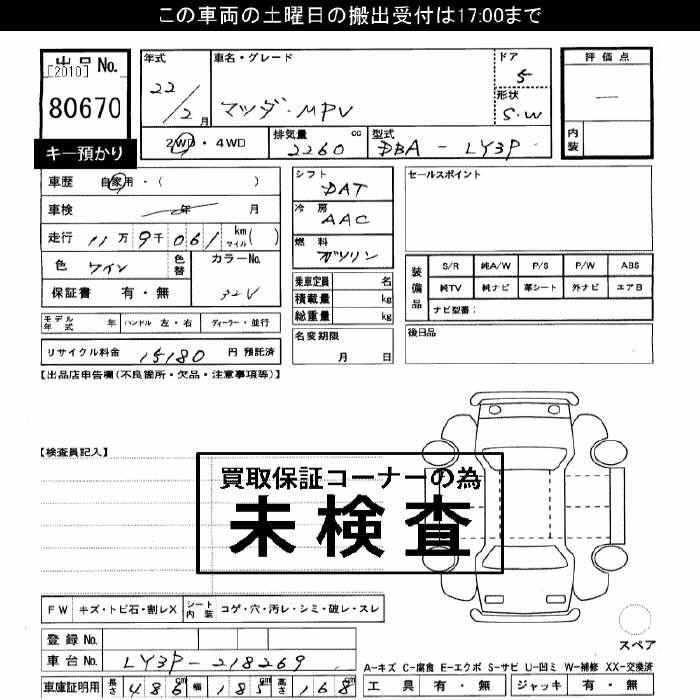 この車両の土曜日の搬出受付は17:00まで
出品 No.
[2010]
80670
キー預かり
年式
22/2月
車名・グレード
マツダ・MPV
ドア
5
形状
S.W
評価点
—
内装
2WD・4WD
排気量 cc
2260
型式
DBA-LY3P
車歴 自家用・( )
車検 年 月
走行 11万9千061 km マイル( )
色 ワイン 色替
カラーNo.
32V
保証書 有・無
シフト
DAT
冷房
AAC
燃料
ガソリン
セールスポイント
乗車定員 名
積載量 kg
総重量 kg
装備品
S/R 純A/W P/S P/W ABS
純TV 純ナビ 革シート 外ナビ エアB
ナビ型番:
モデル年式 年 ハンドル 左・右 ディーラー・並行
名変期限
月 日
後日品
リサイクル料金 15180 円 預託済
【出品店申告欄(不良箇所・欠品・注意事項等)】
【検査員記入】
買取保証コーナーの為
未検査
FW キズ・トビ石・割レX シート内装 コゲ・穴・汚レ・シミ・破レ・スレ
登録 No.
車台 No. LY3P-218269
車庫証明用 長さ 486cm 幅 185cm 高さ 168cm
スペア
A-キズ C-腐食 E-エクボ S-サビ U-凹ミ W-補修 XX-交換済
工具 有・無 ジャッキ 有・無